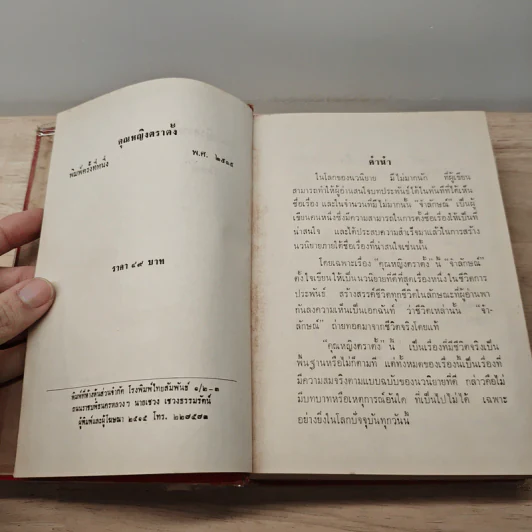 คุณหญิงตราตั้ง
พิมพ์ครั้งที่หนึ่ง
พ.ศ. ๒๕๑๕
ราคา ๔๙ บาท
พิมพ์ที่ห้างหุ้นส่วนจำกัด โรงพิมพ์ไทยสัมพันธ์ ๑/๒-๓
ถนนราชบพิธนครหลวง ฯ นายเชวง เชวงธรรมรัตน์
ผู้พิมพ์และผู้โฆษณา ๒๕๑๕ โทร.
คำนำ
ในโลกของนวนิยาย มีไม่มากนัก ที่ผู้เขียน
สามารถทำให้ผู้อ่านสนใจบทประพันธ์ได้ในทันทีที่ได้เห็น
ชื่อเรื่อง และในจำนวนที่มีไม่มากนั้น “จำลักษณ์” เป็นผู้
เขียนคนหนึ่งซึ่งมีความสามารถในการตั้งชื่อเรื่องให้เป็นที่
น่าสนใจ และได้ประสบความสำเร็จมาแล้วในการสร้าง
นวนิยายภายใต้ชื่อเรื่องที่น่าสนใจเช่นนั้น
โดยเฉพาะเรื่อง “คุณหญิงตราตั้ง” นี้ “จำลักษณ์”
ตั้งใจเขียนให้เป็นนวนิยายที่ดีที่สุดเรื่องหนึ่งในชีวิตการ
ประพันธ์ สร้างสรรค์ชีวิตทุกชีวิตในลักษณะที่ผู้อ่านพา
กันลงความเห็นเป็นเอกฉันท์ ว่าชีวิตเหล่านั้น “จำ-
ลักษณ์” ถ่ายทอดมาจากชีวิตจริงโดยแท้
“คุณหญิงตราตั้ง” นี้ เป็นเรื่องที่มีชีวิตจริงเป็น
พื้นฐานหรือไม่ก็ตามที แต่ทั้งหมดของเรื่องนี้เป็นเรื่องที่
มีความสมจริงตามแบบฉบับของนวนิยายที่ดี กล่าวคือไม่
มีบทบาทหรือเหตุการณ์อันใด ที่เป็นไปไม่ได้ เฉพาะ
อย่างยิ่งในโลกปัจจุบันทุกวันนี้